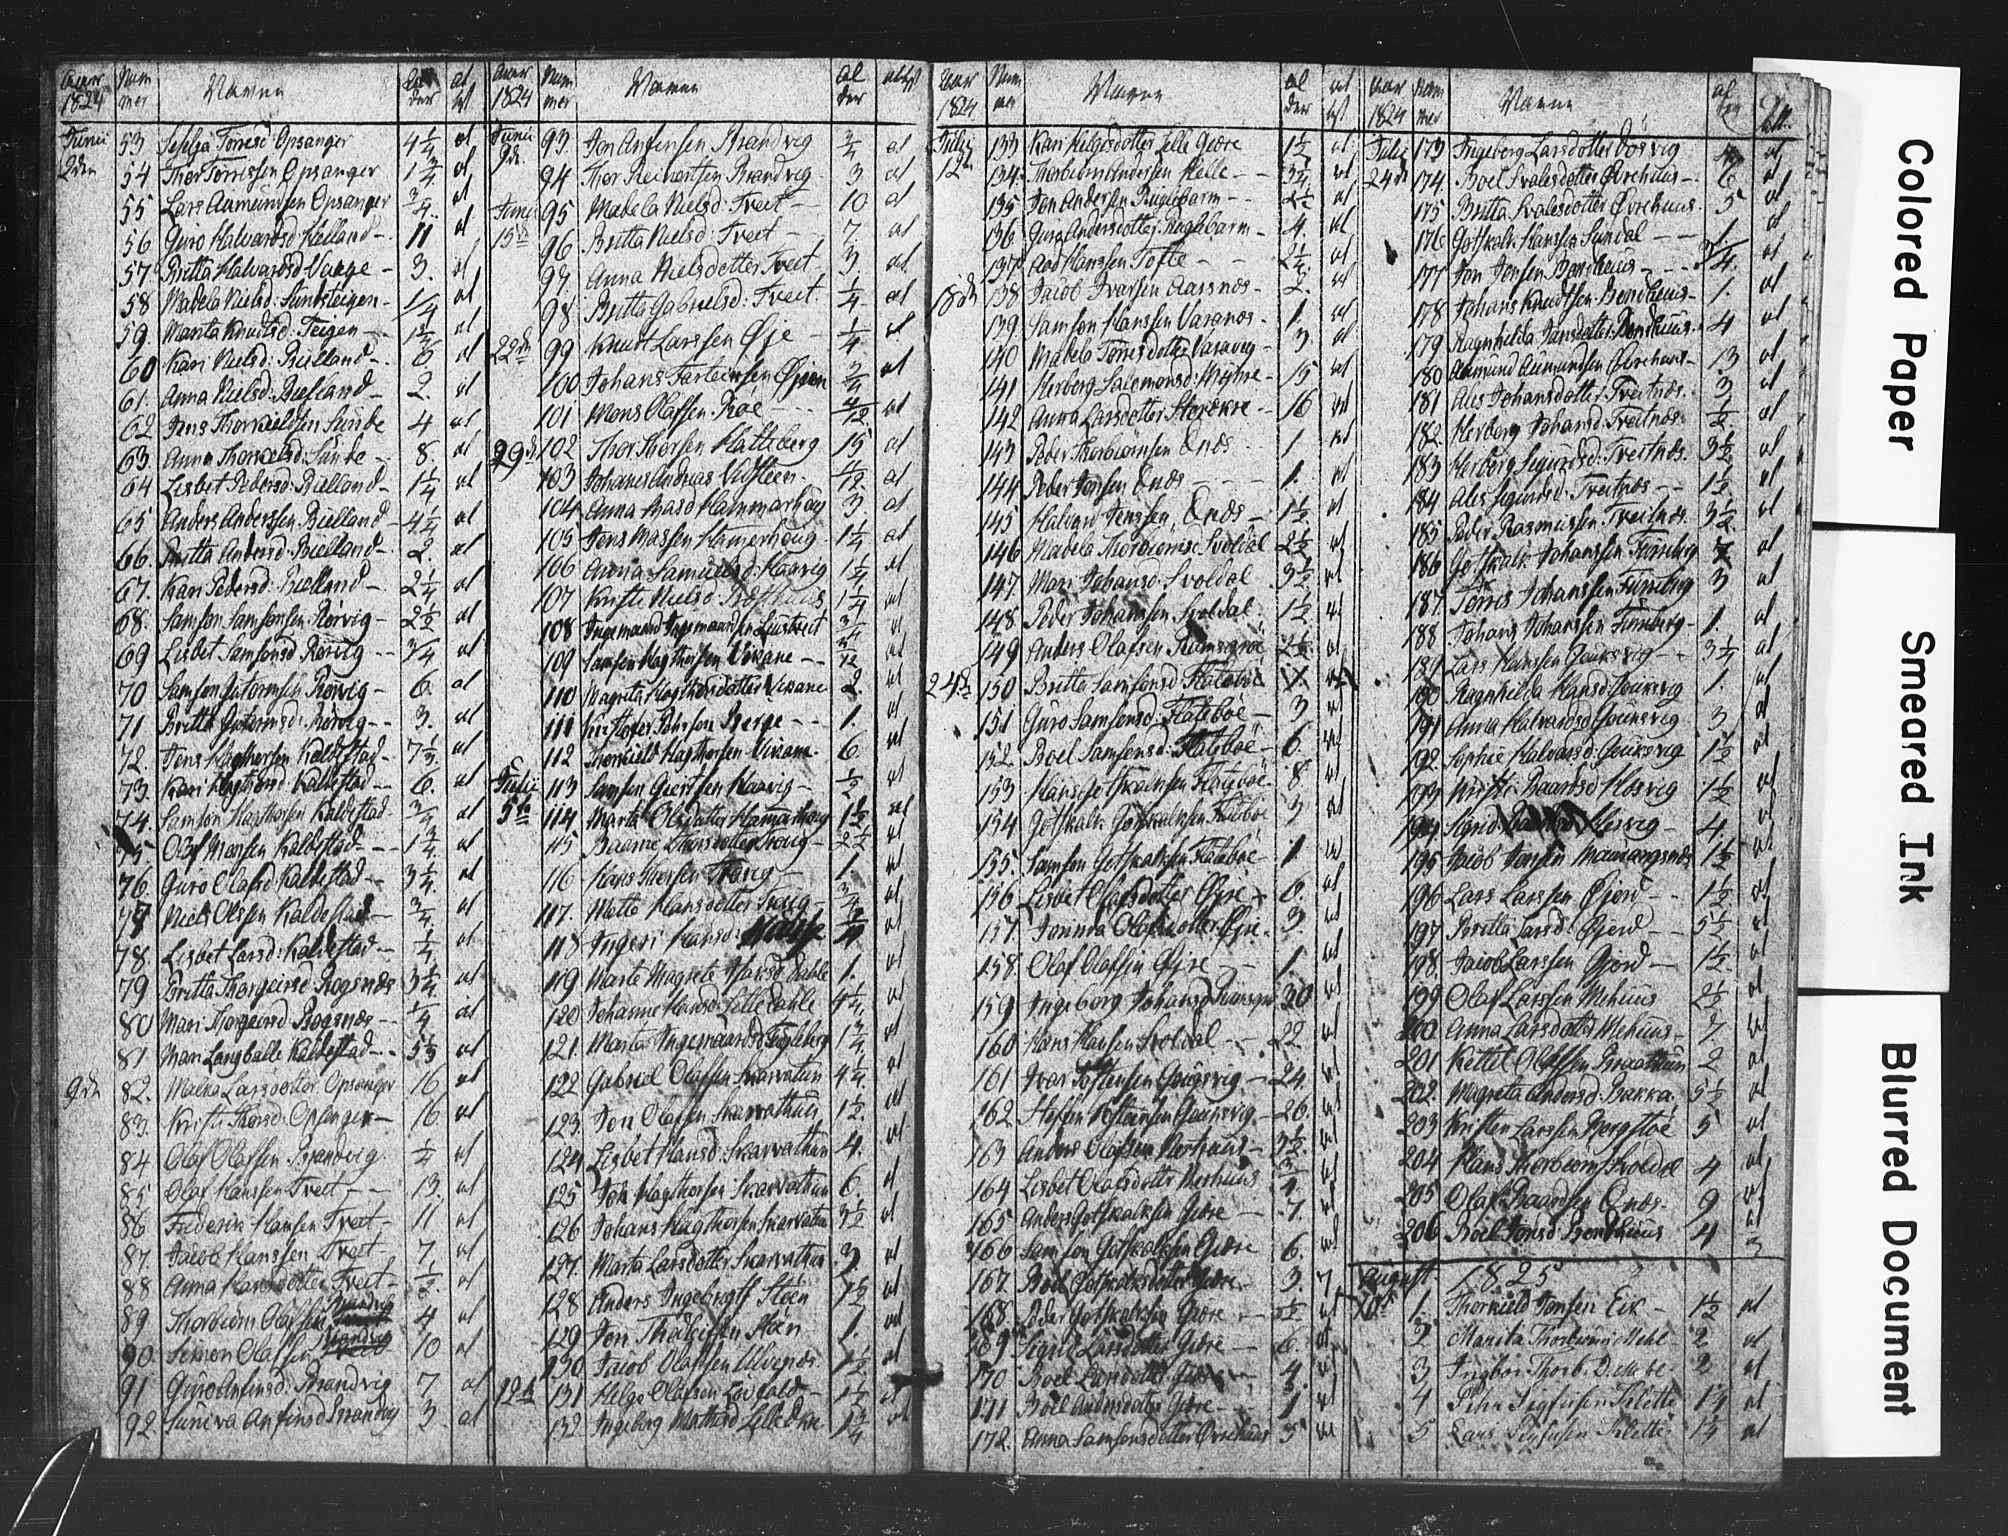 Aar 1824 Nummer Navne Alder al
Junii 53 Selgja Torresd Opsanger 4 1/4 al
2den 54 Thor Torrissen Opsanger 1 3/4 al
55 Lars Aamundsen Opsanger 3/4 al
56 Guro Halvardsd Helland - 11 al
57 Britta Halvardsd Valge - 3. al
58 Madela Nielsd: Sundsteigen - 1/4 al
59. Marita Knudtsd: Teigen - 1 1/2 al
60 Kari Nielsd: Bielland - 6 al
61. Anna Nielsd: Bielland - 2. al
62 Jens Thorkieldsen Sunde 4 al
63. Anna Thorkelsd: Sunde - 8. al
64 Lisbet Pedersd: Bielland - 1 1/4 al
65 Anders Anderssen Bielland - 4 1/2 al
66. Britta Andersd: Bielland - 2. al
67. Kari Pedersd: Bielland - 2 1/4 al
68. Samson Samsonsen Rørvig - 2 1/2 al
69 Lisbet Samsonsd Rørvig - - 3/4 al
70 Samson Gutormsen Rørvig - 6. al
71 Britta Gutormsd: Rørvig - - 3. al
72. Jens Hagthorsen Kaldestad - 7 1/3 al
73. Kari Hagthorsd Kaldestad - - 6. al
74. Samson Hagthorsen Kaldestad - 3/4 al
75 Olaf Monsen Kaldestad - - 1 3/4 al
76. Guro Olafsd Kaldestad - 3 1/4 al
77 Niels Olssen Kaldestad - 3/4 al
78. Lisbet Larsd: Kaldestad - 1/4 al
79 Britta Thorgeirsd Rogsnæs 3 1/4 al
80 Mari Thorgeirsd Rogsnæs - - 1/4 al
81 Mari Langballe Kaldestad - - 5 1/3 al
9de 82. Malena Larsdotter Opsanger 16 al
83. Kristi Thorsd: Opsanger - 16 al
84 Olaf Olafsen Brandvig. 1/4 al
85 Olaf Hanssen Tveit - - 13. al
86 Frederik Hansen Tveit - 11 al
87. Jacob Hanssen Tveit - 7. al
88 Anna Hansdotter Tveit - 1/2 al
89 Thorbiørn Olafsen Brandvig 4 al
90. Simon Olafsen Brandvig 10 al
91 Guro Anfinsd: Brandvig 7 al
92. Suneva Anfinsd Brandvig 3. al
Aar 1824 Nummer Navne Alder
Junii 93. Jon Anfensen Brandvig 3/4 al
9de. 94 Thor Reinertsen Brandvig. 3 al
Junii 95 Madela Nielsd: Tveit - - 10 al
15de 96. Britta Nielsd: Tveit - - 7. al
97 Anna Nielsdotter Tveit 3 al
98. Britta Gabrielsd: Tveit. 1/4 al
22de 99 Knudt Larssen Øje - - 1/4 al
100 Johans Torbeinsen Øjeen 3/4 al
101 Mons Olafsen Roe - - - 4/12 al
29de 102 Thor Thorsen Hatteberg 15 al
103 Johanes Andreas Vidsteen. 1/12 al
104 Anna Masd Hammarhoug 3 al
105 Jens Massen Hamerhoug. 1 1/4 al
106 Anna Samuelsd: Haavig 1 1/4 al
107 Kristi Nielsd: 1/4 al
108 Ingemaand Ingemaandsen Liustveit 3/4 al
109 Samson Hagthorsen Vikane - - 3/12 al
110 Magrita Hagthorsdotter Vikane 2. al
111 Kristofer Børsen Berge - - 1. al
112 Thorkield Hagthorsen Vikane. 6. al
Julii 113 Samson Geertsen Haavig - 1/2 al
5te 114 Marta Olsdatter Hamarhoug 1 1/2 al
115 Baarne Thorsdotter Tvovig - 2 1/2 al
116 Hans Thorsen - 1. al
117. Mette Hansdotter - 3/4 al
118 Ingeri Hansd: al
119 Marta Magrete Isaksd Dahle 1. al
120 Johanne Hansd: Lille Dahle 4 1/4 al
121. Marta Ingemaandsd Fugleberg 1 3/4 al
122 Gabriel Olafsen Skarvathun 4 1/4 al
123. Jon Olafsen Skarvathun 1 1/2 al
124 Lisbet Hansd: Skarvathun 4. al
125 Jon Hagthorsen Skarvathun 6. al
126 Johans Hagthorsen Skarvathun 3 1/2 al
127. Marta Larsdotter Skarvathun 3. al
128 Anders Ingebrigtsen Støen 1 1/2 al
129 Jon Støen - 1. al
130 Jacob Olafsen Ulvenæs. 1 1/2 al
12te 131 Helge Olafsen - al
132 Ingeborg Mathisd Lille 1 3/4 al
Aar 1824 Nummer Navne Alder
Julii 133 Kari Helgesdotter Lille Gedre 1 1/2 al
12te 134. Thorbiørn Andersen Helle - - 3/4 al
135 Jon Andersen Ruglebarm - - 2 1/2 al
136. Guro Andersdotter Ruglebarm - 4. al
137 Aad Hanssen Tofte - - - 2 1/4 al
18de 138 Jacob Ivarsen Aarsnæs - 2. al
139 Samson Hanssen Varanæs - 1. al
140 Madela Torrisdotter Varavig - 3 al
141 Herborg Salemonsd: Myhre - 15 al
142 Anna Larsdotter - 16 al
143 Peder Thorbiørnsen Ænæs - 1. al
144 Peder Jonsen Ænæs - - - 1. al
145 Halvard Jenssen Ænæs - 1 1/2 al
146 Madela Thorbiørnsd Svoldal 2 1/2 al
147. Mari Johansd: Svoldal 3 1/2 al
148. Peder Johanssen Svoldal. 1 1/2 al
149 Anders Olafsen Ramsgroe 2 1/4 al
24de 150 Britta Samsonsd Flatebøe
151. Guro Samsonsd: Flatebøe - 3 al
152. Boel Samsonsd: Flatebøe - 6. al
153 Hans Gotskalksen Flatebøe - 8. al
154 Gotskalk Gotskalksen Flatebøe 3 al
155. Samson Gotskalksen Flatebøe - 1. al
156 Lisbet Olafsdotter Øjre - 6. al
157 Jonnva Olafsdotter Øjre. 3. al
158. Olaf Olafsen Øjre - - 1 al
159 Ingeborg Johansd Ramsgroe 30 al
160 Hans Hansen Svoldal - - 22. al
161 Ivar Tostensen Gougsvig. - 24. al
162 Steffen Tostensen Gougsvig. - 26. al
163 Anders Olafsen Nerhuus - 3 1/2 al
164 Lisbet Olafsdotter Nerhuus 3/4 al
165 Anders Gotskalksen Gedre - - 7. al
166 Samson Gotskalksen Gedre 6. al
167. Boel Gotskalksdotter Gedre - 3.
168. Peder Gotskalksen Gedre - - al
169 Sigrid Larsdotter Gedre - - 6. al
170 Boel Larsdotter Gedre - - 4. al
171 Boel Andersdotter Gedre - 1 al
172. Anna Samsonsdotter Øvrehuus 5 al
Aar 1824 Nummer Navne Alder
Julii 173 Ingeborg Larsdotter Dosvig al
24de 174 Boel Svalesdotter Øvrehuus - - 6. al
175 Britta Svalesdotter Øvrehuus. 5 al
176 Gotskalk Hanssen Sundal - - 1. al
177 Jon Jonsen Bondhuus - - - 3/4 al
178 Johans Knudtsen Bondhuus - 1. al
179 Ragnhilda Jonsdotter Bondhuus - 4 al
180 Aamund Aamundsen Øvrehuus - 13 al
181 Alis Johansdotter Tveitnæs. 3. al
182. Herborg Johansd: Tveitnæs. 1/2 al
183 Herborg Sigurdsd: Tveitnæs. 3 1/2 al
184 Alis Sigurdsd: Tveitnæs - - 1 1/2 al
185 Peder Rasmussen Tveitnæs. 3 1/2 al
186 Gotskalk Johanssen Furreberg al
187. Torris Johanssen Furreberg 3 al
188 Johans Johanssen Furreberg - 1. al
189 Lars Hanssen Gouksvig - - 3 1/4 al
190 Ragnhilda Hansd Gouksvig 1. al
191 Anna Halvardsd Gouksvig 3 al
192. Sophie Halvarsd: Gouksvig 1 1/2 al
193 Kristi Baardsd Hesvig 1 1/2 al
194 Sigrid Hesvig - 4. al
195 Jacob Jonsen Mauangsnæs 1 1/2 al
196 Lars Larssen Gjerd - - 1 1/2 al
197 Britta Larsd: Gjerd - - 5 1/2 al
198. Jacob Larssen Gjerd - - 1 1/2. al
199 Olaf Larssen Mehuus 2 1/2 al
200. Anna Larsdotter Mehuus - 7. al
201 Kettel Olafsen Braathun 2 al
202. Magreta Andersd: Bakka. 5 1/2 al
203 Kristen Larssen Bergstøe 5 al
204 Hans Thorbiørnsen Svoldal 4 al
205 Olaf Baardsen Ænæs. 9 al
206 Boel Jonsd Bondhuus 4 al
August 1825
1. Thorkield Jonsen Eik - 1 1/2 al
2 Marita Thorbiørnsd Mehl - 2 al
3 Ingbor Thorb. D. Mehl - 2 al
4 Sigfusen Klette 1 1/4 al
5 Lars Sigfusen Klette 1 1/4 al
Colored Paper
Smeared Ink
Blurred Document